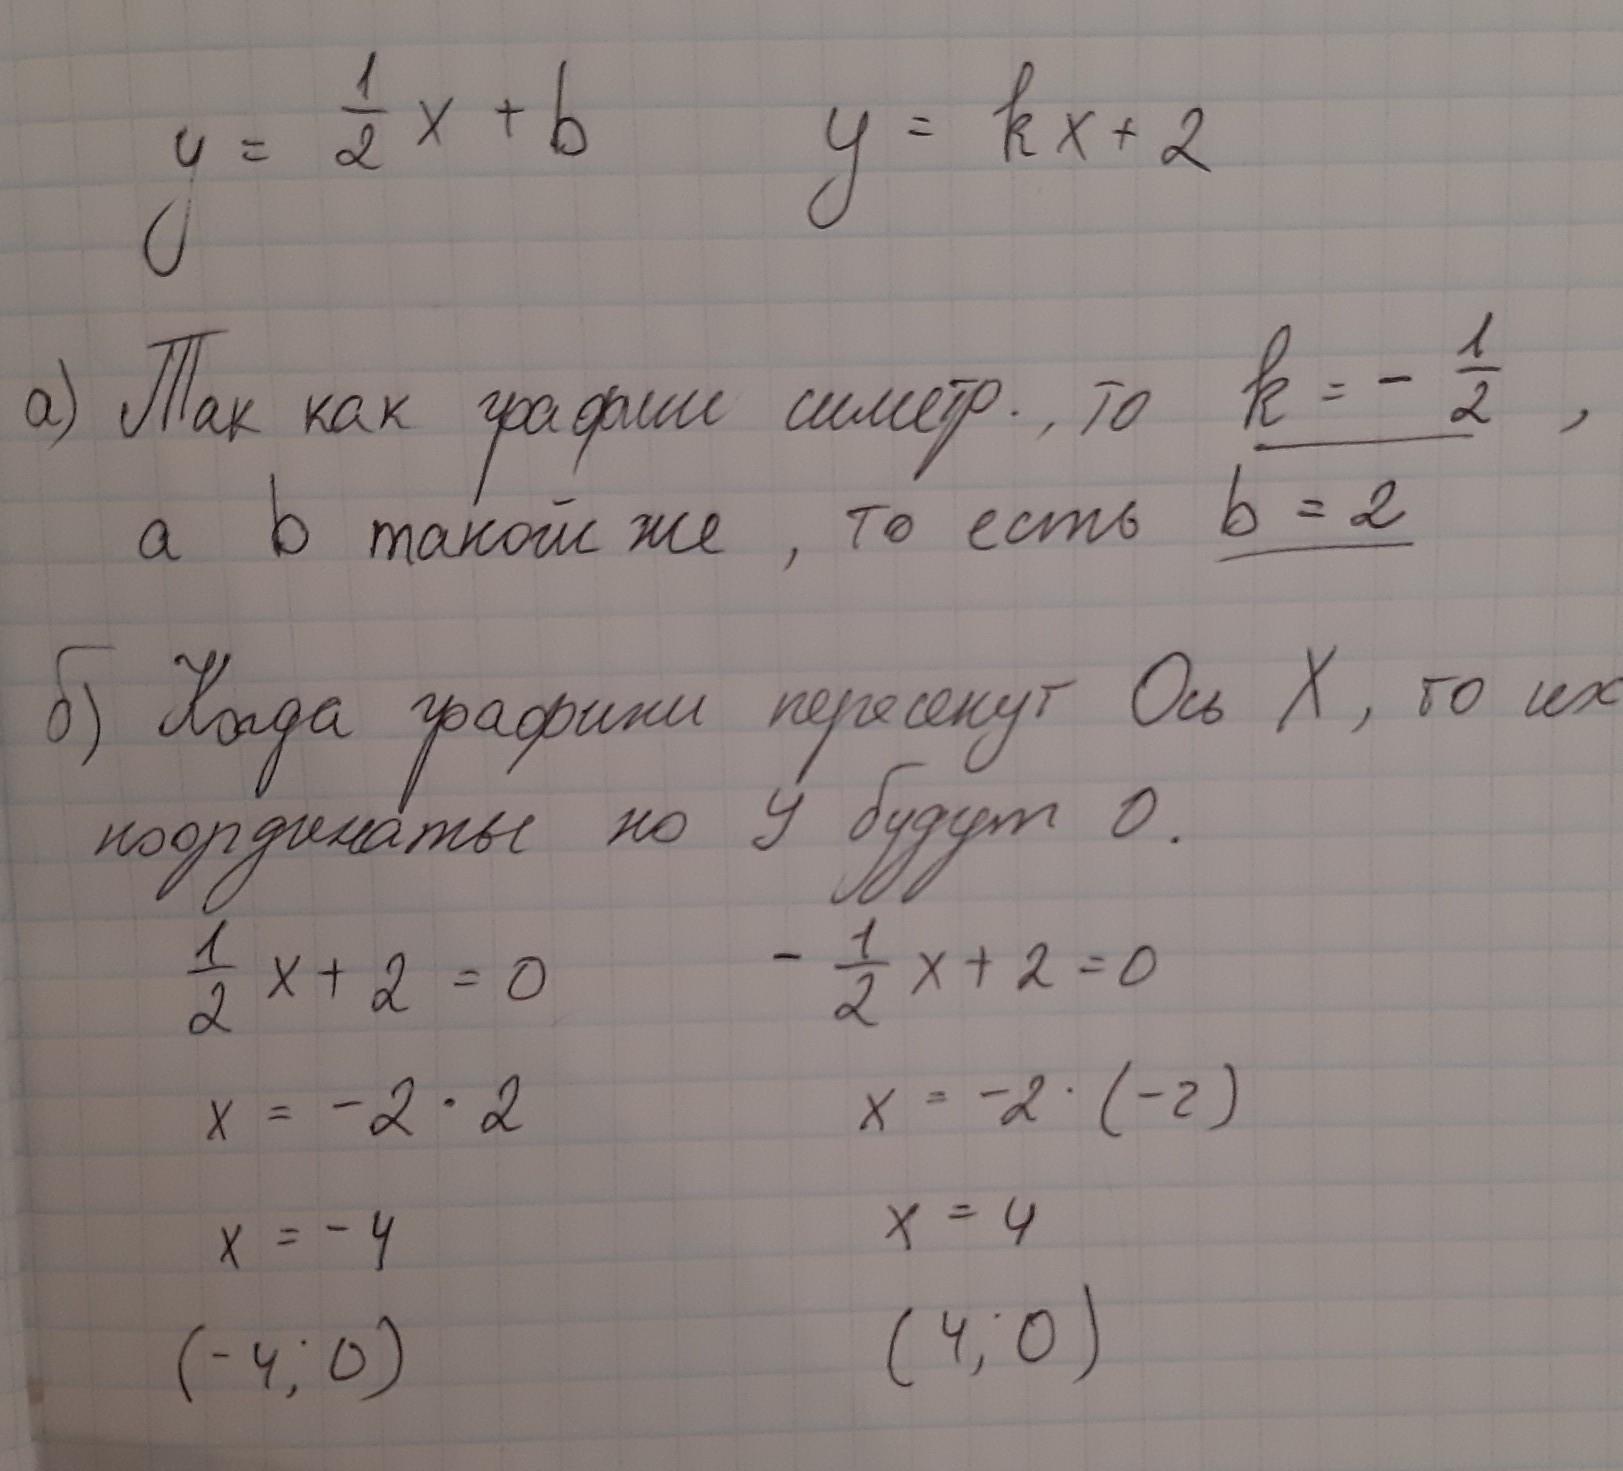 y = 1/2 x + b   y = kx + 2
а) Так как графики симетр., то k = - 1/2 ,
а b такой же, то есть b = 2
б) Когда графики пересекут Ось X, то их
координаты по y будут 0.
1/2 x + 2 = 0   - 1/2 x + 2 = 0
x = -2 · 2   x = -2 · (-2)
x = -4   x = 4
(-4; 0)   (4; 0)